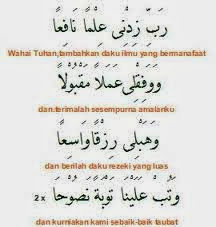 رَبِّ زِدْنِي عِلْمًا نَافِعًا
Wahai Tuhan,tambahkan daku ilmu yang bermanafaat
وَوَفِّقْلِي عَمَلًا مَقْبُوْلًا
dan.terimalah sesempurna amalanku
وَهَبْلِي رِزْقًا وَاسِعًا
dan berilah daku rezeki yang luas
وَتُبْ عَلَيْنَا تَوْبَةً نَصُوْحًا 2x
dan kurniakan kami sebaik-baik taubat